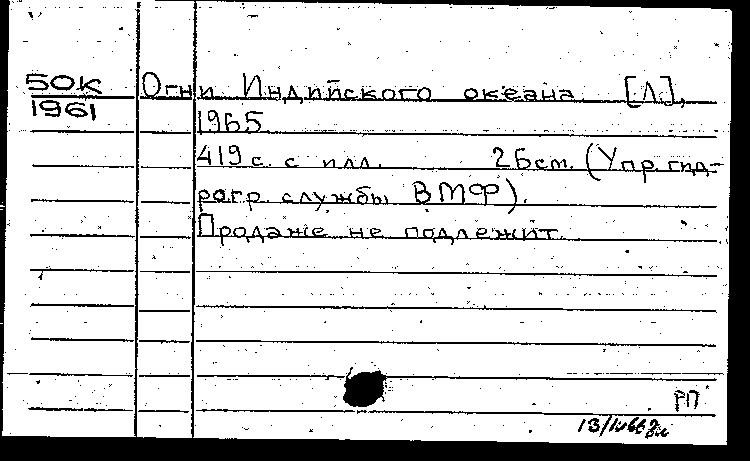 50К Огни Индийского океана [Л.],
1961
1965.
419 с. с илл. 26 см. (Упр. гид-
рогр. службы ВМФ).
Продаже не подлежит.
РП
13/IV 66г.